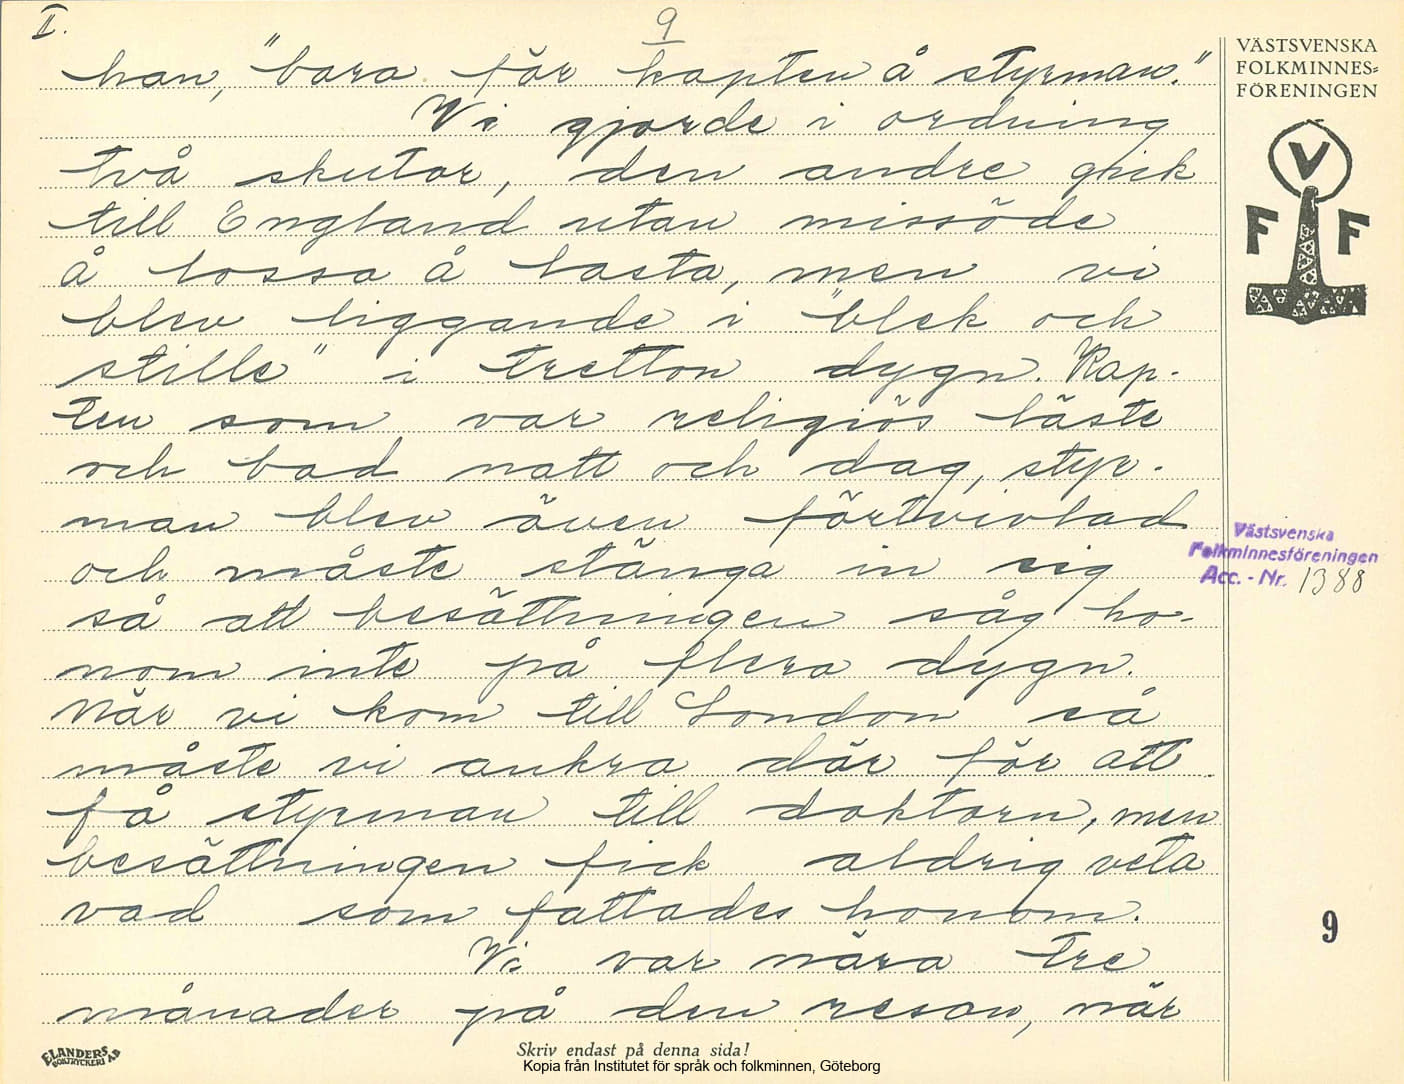 II.
9
han, "bara för kapten å styrman."
Vi gjorde i ordning
två skutor, den andre gick
till England utan missöde
å lossa å lasta, men vi
blev liggande i "blek och
stille" i tretton dygn. Kap-
ten som var religiös läste
och bad natt och dag, styr-
man blev även förtvivlad
och måste stänga in sig
så att besättningen såg ho-
nom inte på flera dygn.
När vi kom till London så
måste vi ankra där för att
få styrman till doktorn, men
besättningen fick aldrig veta
vad som fattades honom.
Vi var nära tre
månader på den resan, när
VÄSTSVENSKA
FOLKMINNES=
FÖRENINGEN
V
F F
Västsvenska
Folkminnesföreningen
Acc. - Nr. 1388
9
ELANDERS
BOKTRYCKERI AB
Skriv endast på denna sida!
Kopia från Institutet för språk och folkminnen, Göteborg